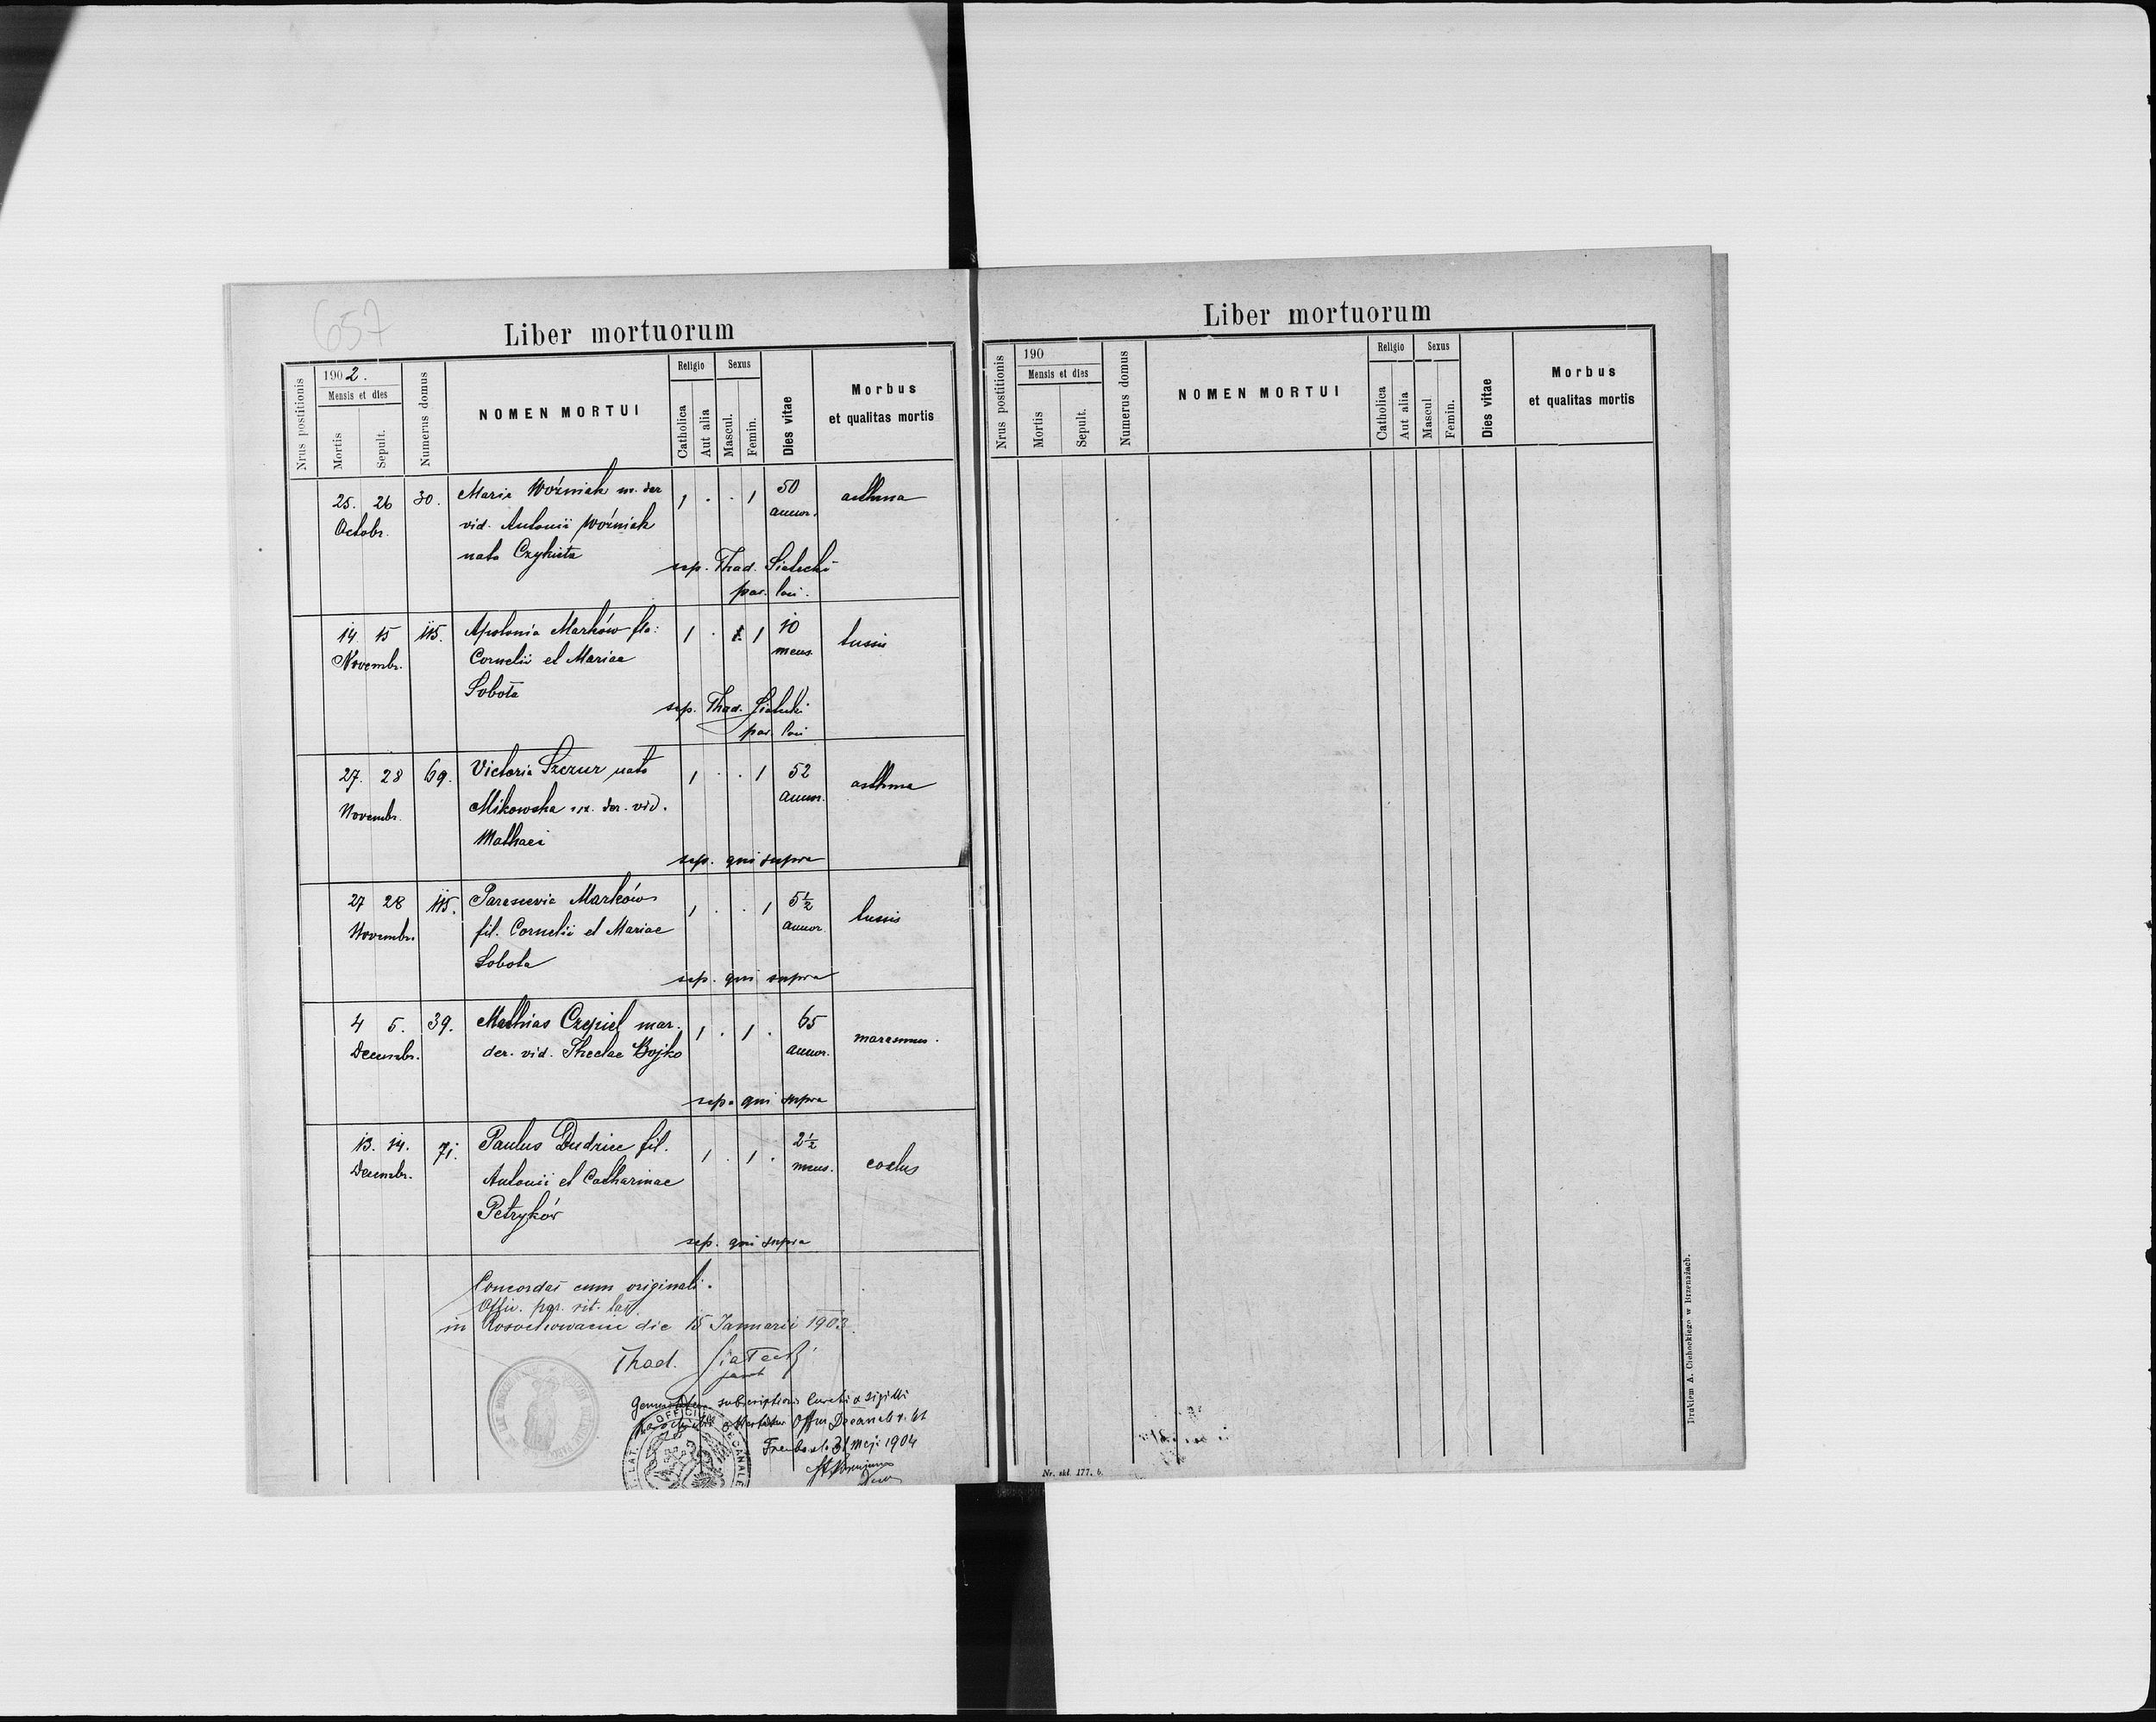 657
Liber mortuorum
Nrus postitionis
1902.
Mensis et dies
Mortis
Sepult.
Numerus domus
NOMEN MORTUI
Religio
Catholica
Aut alia
Sexus
Mascul.
Femin.
Dies vitae
Morbus
et qualitas mortis
25. 26 30. Maria Woźniak ux. der 1 . . 1 50 asthma
Octobr. vid. Antonii Woźniak annor.
nata Czykieta
sep. Thad. Siatecki
par. loci.
14 15 115. Apolonia Marków fla: 1 . 1 10 tussis
Novembr. Cornelii et Mariae mens.
Sobota
sep. Thad. Siatecki
par. loci
27. 28 69. Victoria Szczur nata 1 . . 1 52 asthma
Novembr. Mikowska ux. der. vid. annor.
Mathaei
sep. qui supra
27 28 115. Parascevia Marków 1 . . 1 5½ tussis
Novembr. fil. Cornelii et Mariae annor.
Sobota
sep. qui supra
4 5. 39. Mathias Czepiel mar. 1 . 1 . 65 marasmus.
Decembr. der. vid. Theclae Bojko annor.
sep. qui supra
13. 14. 71. Paulus Dudzicz fil. 1 . 1 . 2½
Decembr. Antonii et Catharinae mens.
Petryków
sep. qui supra
Concordat cum originali.
Offic. par. rit. lat.
in Rosochowaciec die 15 Januarii 1903.
Thad. Siatecki
subscriptionis Curati & sigilli
31 Maji 1904
OFFICIUM DECANALE
LAT.
Liber mortuorum
Nrus postitionis
190
Mensis et dies
Mortis
Sepult.
Numerus domus
NOMEN MORTUI
Religio
Catholica
Aut alia
Sexus
Mascul.
Femin.
Dies vitae
Morbus
et qualitas mortis
Nr. skł. 177. b.
Drukiem A. Cichockiego w Brzeżanach.